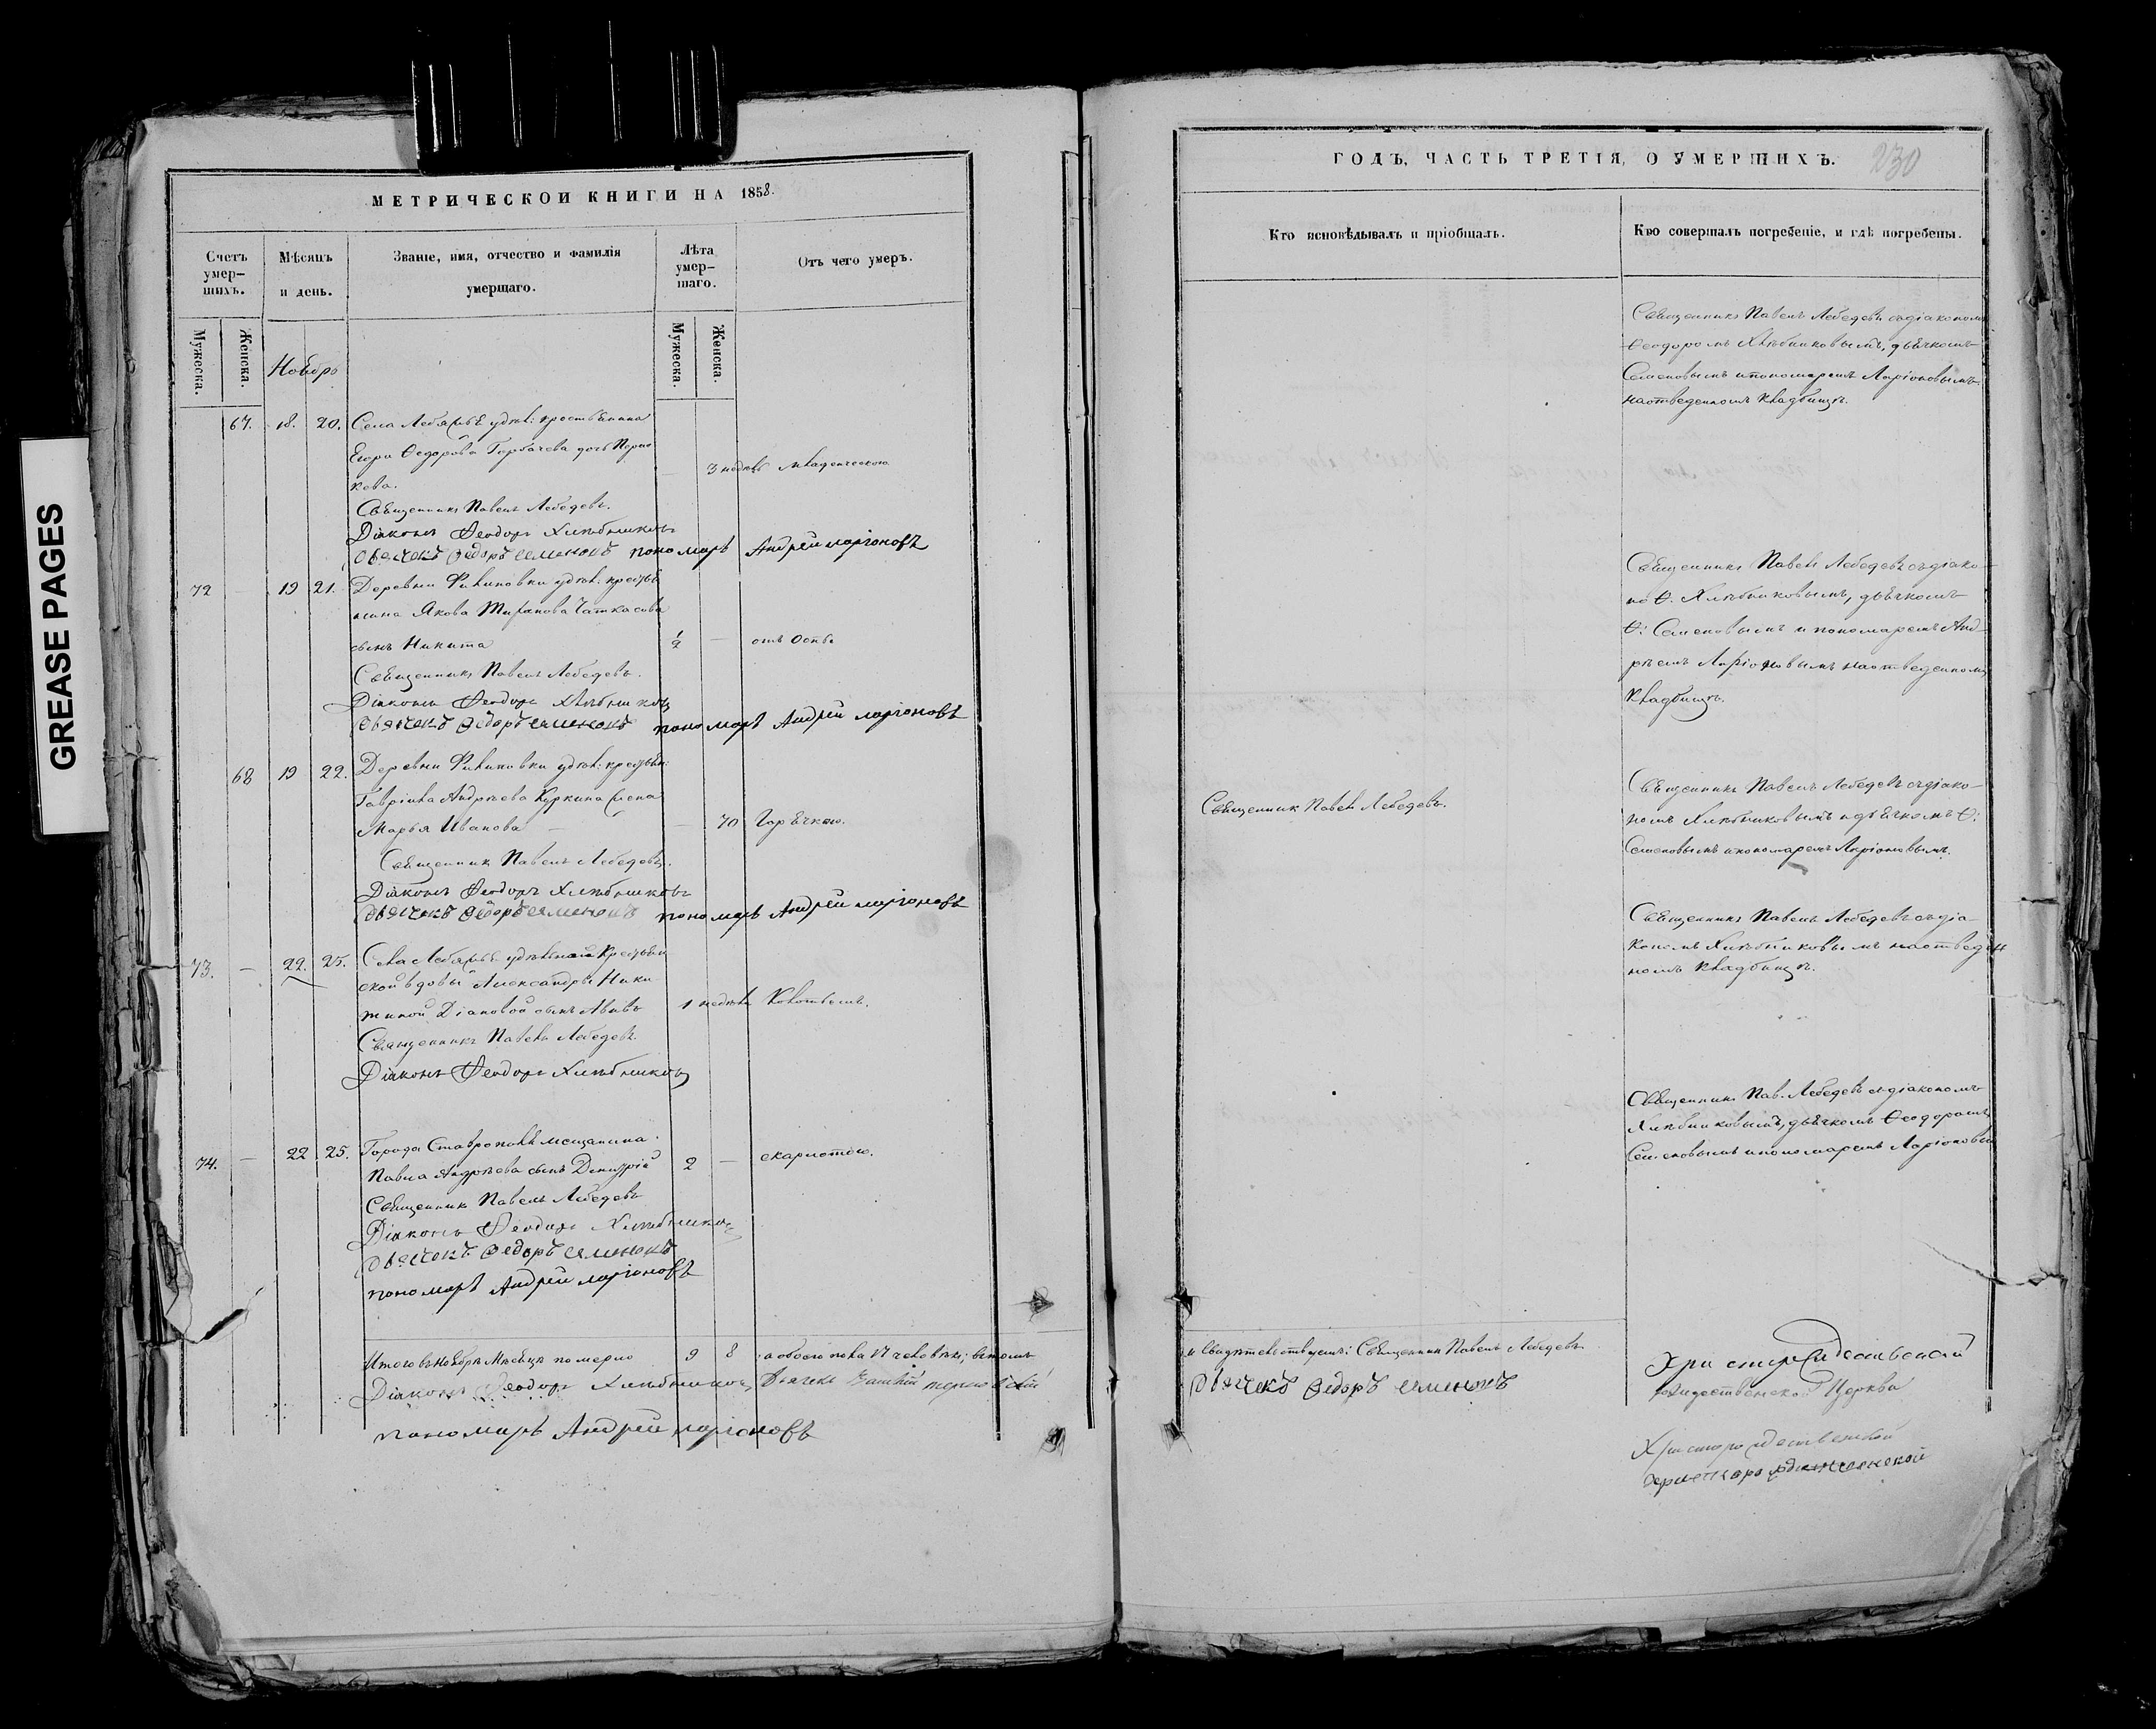 GREASE PAGES
МЕТРИЧЕСКОЙ КНИГИ НА 1858.
Счетъ умер-шихъ.
Мѣсяцъ и день.
Званіе, имя, отчество и фамилія умершаго.
Лѣта умер-шаго.
Отъ чего умеръ.
Мужеска.
Женска.
Мужеска.
Женска.
Ноябрь
67. 18. 20. Села Лебяжьѣ удѣл: крестьянина
Егора Ѳедорова Горбачева дочь
3 недѣль младенческою
Священникъ Павелъ Лебедевъ.
Діаконъ Ѳеодоръ Хлѣбниковъ
Дьячекъ Ѳедоръ Семеновъ пономарь Андрей Ларіоновъ
72 — 19 21. Деревни Филиповки удѣл: крестья
нина Якова
сынъ Никита 1/2 — отъ Оспы
Священникъ Павелъ Лебедевъ.
Діаконъ Ѳеодоръ Хлѣбниковъ
Дьячекъ Ѳедоръ Семеновъ пономарь Андрей Ларіоновъ
68 19 22. Деревни Филиповки удѣл: крестьян:
Гаврила Андрѣева Куркина жена
Марья Иванова — — 70 Горячкою.
Священникъ Павелъ Лебедевъ.
Діаконъ Ѳеодоръ Хлѣбниковъ
Дьячекъ Ѳедоръ Семеновъ пономарь Андрей Ларіоновъ
73. — 22. 25. Села Лебяжьѣ удѣльной Крестьян
ской вдовы Александры Ники
тиной сынъ
1 недѣли
Священникъ Павелъ Лебедевъ
Діаконъ Ѳеодоръ Хлѣбниковъ
74. — 22 25. Города Ставрополя мещанина
Павла Андрѣева сынъ Димитрій 2 —
Священникъ Павелъ Лебедевъ
Діаконъ Ѳеодоръ Хлѣбниковъ
Дьячекъ Ѳедоръ Семеновъ
пономарь Андрей Ларіоновъ
Итого въ Ноябрѣ Мѣсяцѣ померло 9 8 а обоего пола 17 человѣкъ; въ томъ
Діаконъ Ѳеодоръ Хлѣбниковъ
пономарь Андрей Ларіоновъ
ГОДЪ, ЧАСТЬ ТРЕТІЯ, О УМЕРШИХЪ.
230
Кто исповѣдывалъ и пріобщалъ.
Кто совершалъ погребеніе, и гдѣ погребены.
Священникъ Павелъ Лебедевъ съ діакономъ
Ѳеодоромъ Хлѣбниковымъ, дьячкомъ
Семеновымъ и пономаремъ Ларіоновымъ
на отведенномъ кладбищѣ.
Священникъ Павелъ Лебедевъ съ діако-
но Ѳ. Хлѣбниковымъ, дьячкомъ
Ѳ: Семеновымъ и пономаремъ Анд-
рѣемъ Ларіоновымъ на отведенномъ
кладбищѣ.
Священник Павелъ Лебедевъ.
Священникъ Павелъ Лебедевъ съ діако-
номъ Хлѣбниковымъ и дьячкомъ Ѳ:
Семеновымъ и пономаремъ Ларіоновымъ.
Священникъ Павелъ Лебедевъ съ діа-
кономъ Хлѣбниковымъ на отведен
номъ кладбищѣ.
Священникъ Пав. Лебедевъ съ діакономъ
Хлѣбниковымъ, дьячкомъ Ѳеодоромъ
Семеновымъ и пономаремъ Ларіоновым
и свидѣтельствуемъ: Священникъ Павелъ Лебедевъ
Дьячекъ Ѳедоръ Семеновъ
Христорождественской
Церкви
Христорождественской